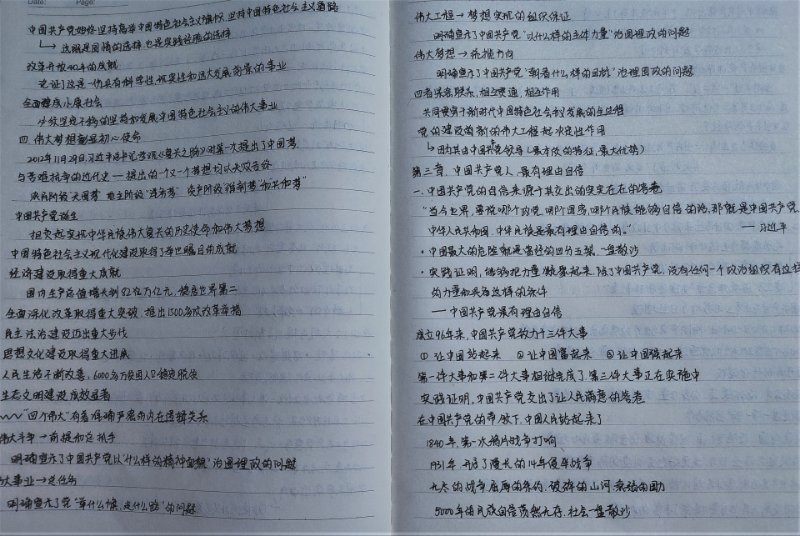 Date: Page:
中国共产党始终坚持高举中国特色社会主义旗帜 坚持中国特色社会主义道路
这既是国情的选择 也是实践经验的选择
改革开放40年的成就
论证了这是一份具有科学性、现实性和远大发展前景的事业
全面建成小康社会
生动坚定不移的坚持和发展中国特色社会主义的伟大事业
四 伟大梦想彰显初心使命
2012年11月29日,习近平总书记参观《复兴之路》时第一次提出了中国梦
与苦难抗争的近代史—提出的一个又一个梦想均以失败告终
农民阶级"天国梦" 地主阶级"洋务梦" 资产阶级"维新梦""共和梦"
中国共产党诞生
担负起实现中华民族伟大复兴的历史使命和伟大梦想
中国特色社会主义现代化建设取得了举世瞩目的成就
经济建设取得重大成就
国内生产总值增长到82亿万亿元,稳居世界第二
全面深化改革取得重大突破,推出1500多项改革举措
民主法治建设迈出重大步伐
思想文化建设取得重大进展
人民生活不断改善,6000多万贫困人口稳定脱贫
生态文明建设成效显著
"四个伟大"有着准确严密的内在逻辑关系
伟大斗争→前提和主抓手
明确宣示了中国共产党以"什么样的精神面貌"治国理政的问题
大事业→总任务
明确宣示了党"举什么旗,走什么路"的问题
伟大工程→梦想实现的组织保证
明确宣示了中国共产党"以什么样的主体力量"治国理政的问题
伟大梦想→统揽方向
明确宣示了中国共产党"朝着什么样的目标"治理国政的问题
四者紧密联系、相互贯通、相互作用
共同贯穿于新时代中国特色社会主义发展的全过程
党的建设的新的伟大工程起决定性作用
因为其由中国共产党领导(最本质的特征,最大优势)
第三章,中国共产党人,最有理由自信
一、中国共产党的自信来源于其交出的实实在在的答卷
"当今世界,要说哪个政党、哪个国家、哪个民族能够自信的话,那就是中国共产党、
中华人民共和国、中华民族是最有理由自信的。" ——习近平
·中国最大的危险就是曾经的四分五裂,一盘散沙
·实践证明,能够把力量凝聚起来,除了中国共产党,没有任何一个政治组织有这样
的力量和具备这样的条件
—中国共产党最有理由自信
成立96年来,中国共产党致力于三件大事
① 让中国站起来 ② 让中国富起来 ③ 让中国强起来
第一件大事和第二件大事相继完成了,第三件大事正在实施中
实践证明,中国共产党交出了让人民满意的答卷
在中国共产党的带领下,中国人民站起来了
1840年,第一次鸦片战争打响
1931年 开启了漫长的14年侵华战争
九泰的战争,屈辱的条约,破碎的山河,衰弱的国力
5000年的民族自信荡然无存,社会一盘散沙